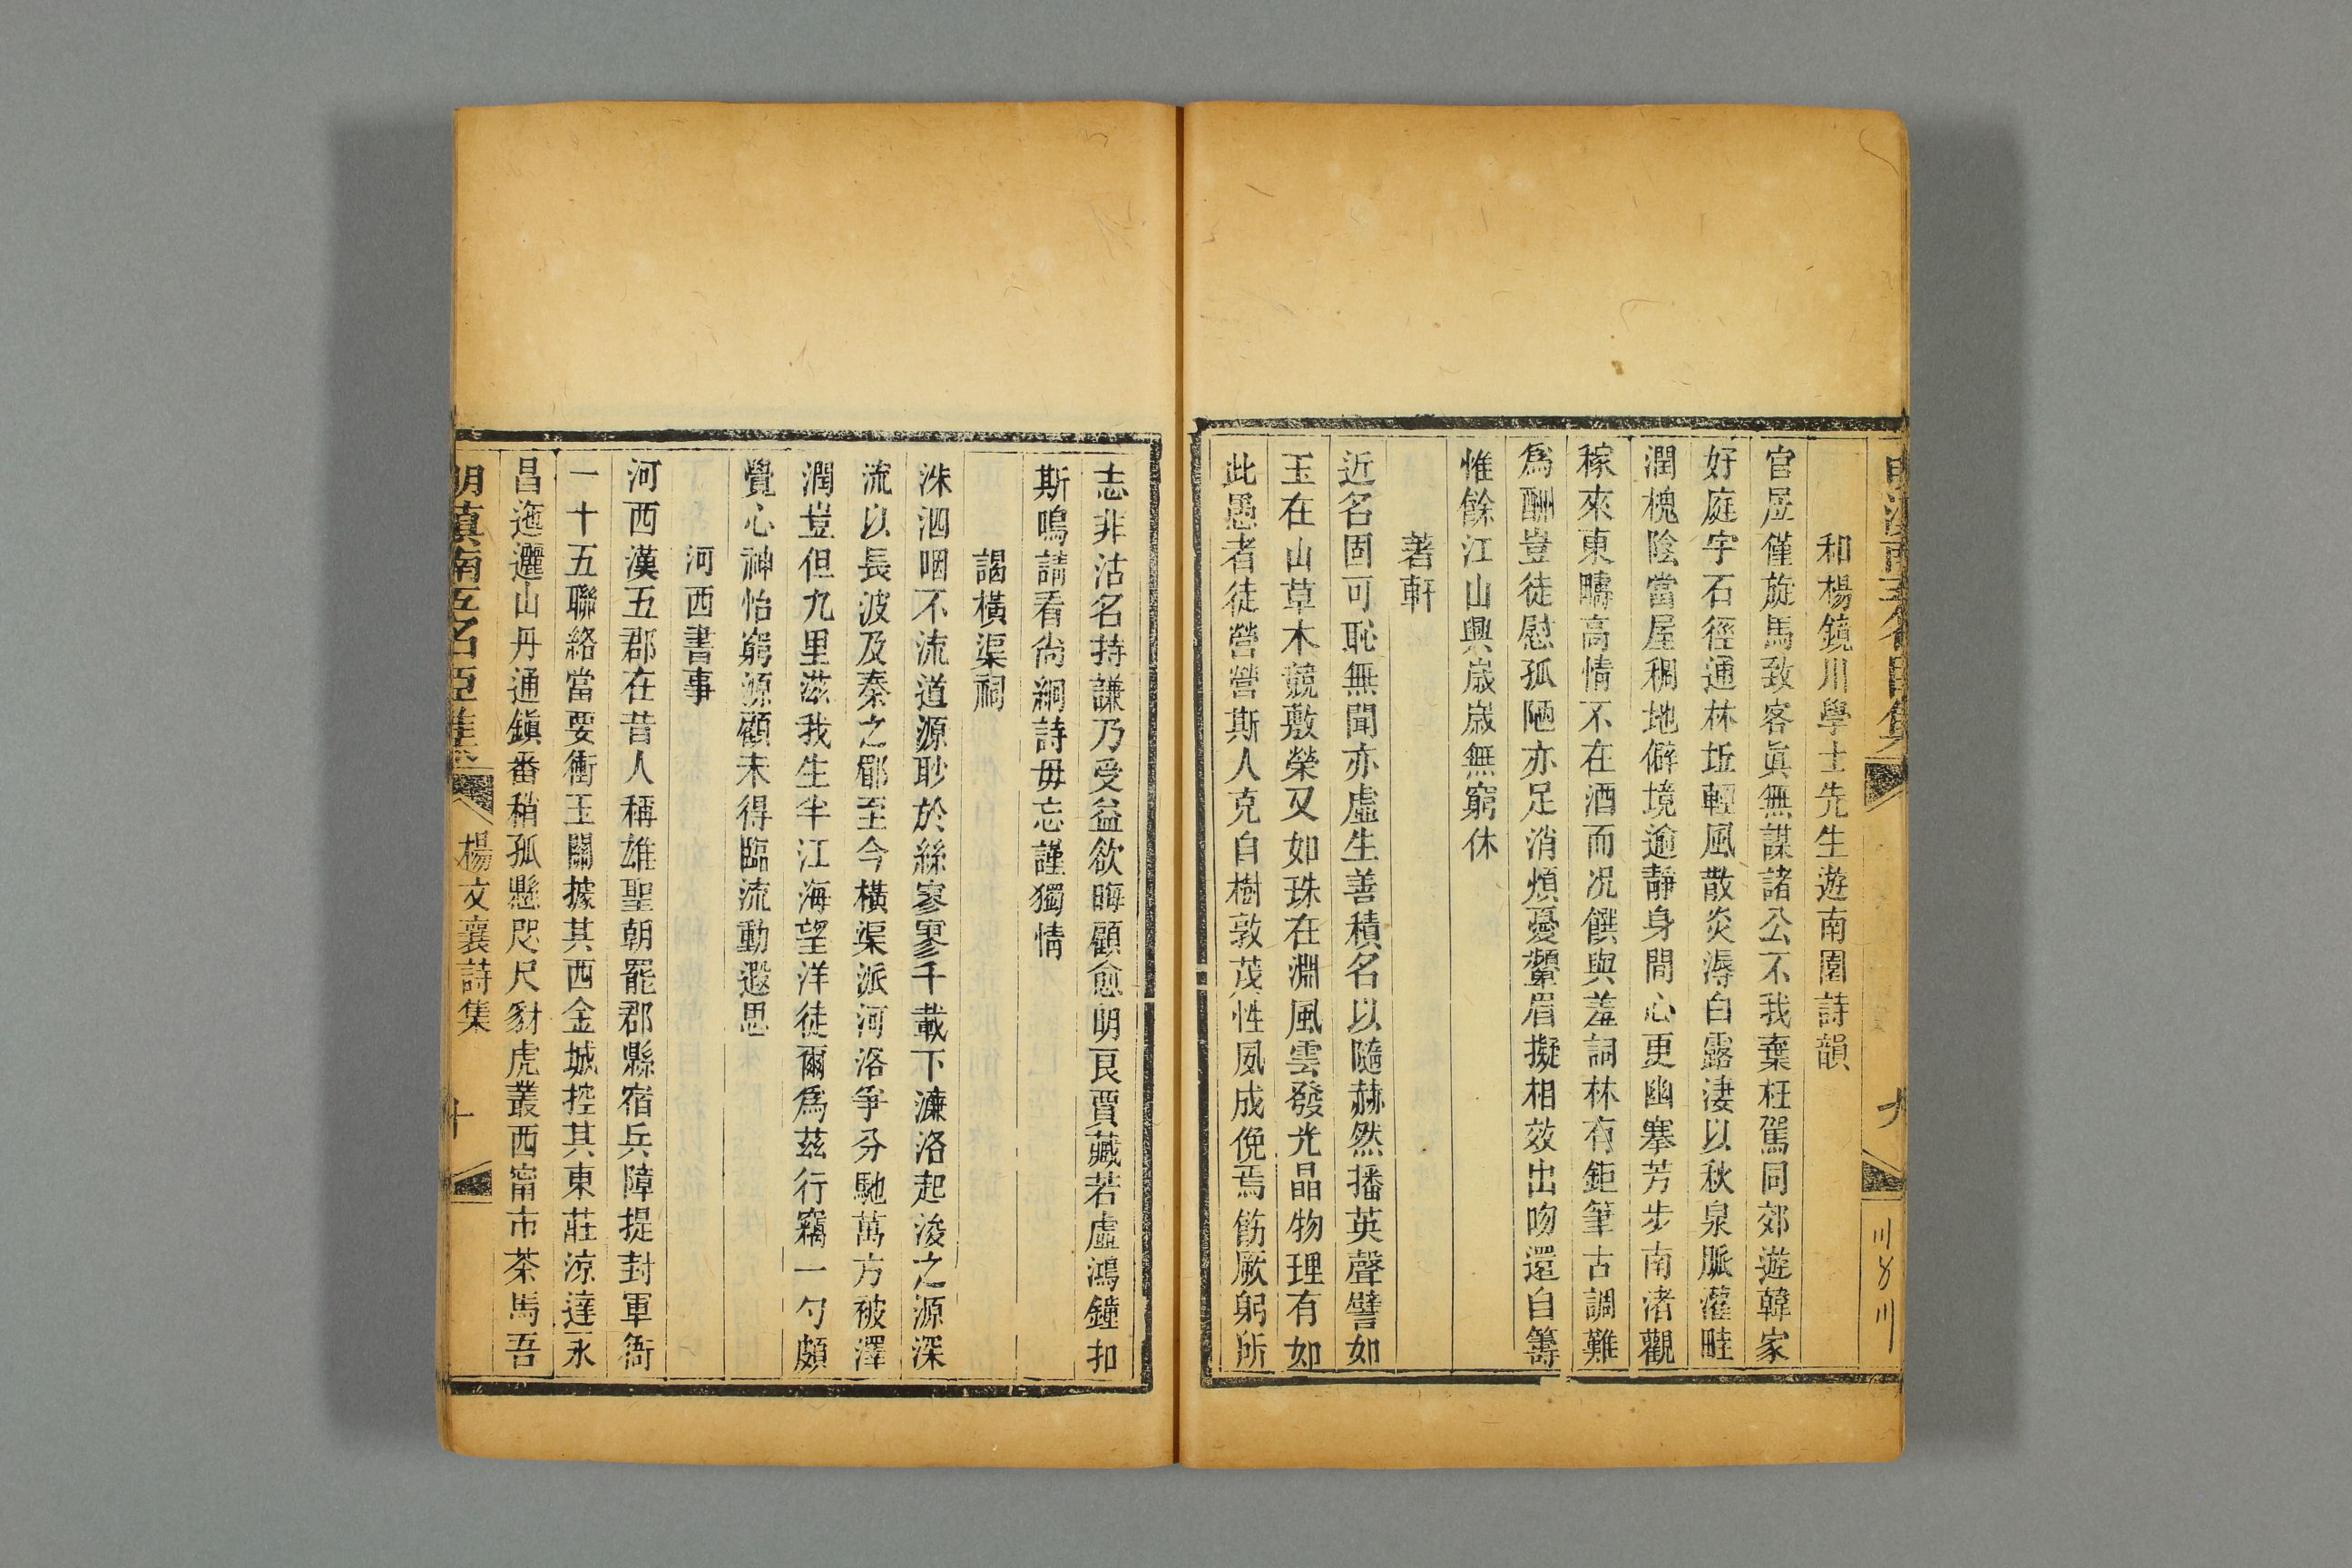 和楊鏡川學士先生遊南園詩韻
官居僅旋馬致客眞無謀諸公不我棄枉駕同郊遊韓家
好庭宇石徑通林坵輕風散炎溽白露淒以秋泉脈灌畦
潤槐陰當屋稠地僻境逾靜身閒心更幽搴芳步南渚觀
稼來東疇高情不在酒而况饌與羞詞林有鉅筆古調難
爲酬豈徒慰孤陋亦足消煩憂顰眉擬相效出吻還自籌
惟餘江山興歲歲無窮休
著軒
近名固可恥無聞亦虛生善積名以隨赫然播英聲譬如
玉在山草木競敷榮又如珠在淵風雲發光晶物理有如
此愚者徒營營斯人克自樹敦茂性夙成俛焉飭厥躬所
九
志非沽名持謙乃受益欲晦顧愈明良賈藏若虛鴻鐘扣
斯鳴請看尚絅詩毋忘謹獨情
謁橫渠祠
洙泗咽不流道源眇於絲寥寥千載下濂洛起浚之源深
流以長波及秦之郿至今橫渠派河洛爭分馳萬方被澤
潤豈但九里滋我生半江海望洋徒爾爲茲行竊一勺頗
覺心神怡窮源顧未得臨流動遐思
河西書事
河西漢五郡在昔人稱雄聖朝罷郡縣宿兵障提封軍衞
一十五聯絡當要衝玉關據其西金城控其東莊涼達永
昌迤邐山丹通鎭番稍孤懸咫尺豺虎叢西甯市茶馬吾
明滇南五名臣集 楊文襄詩集 十